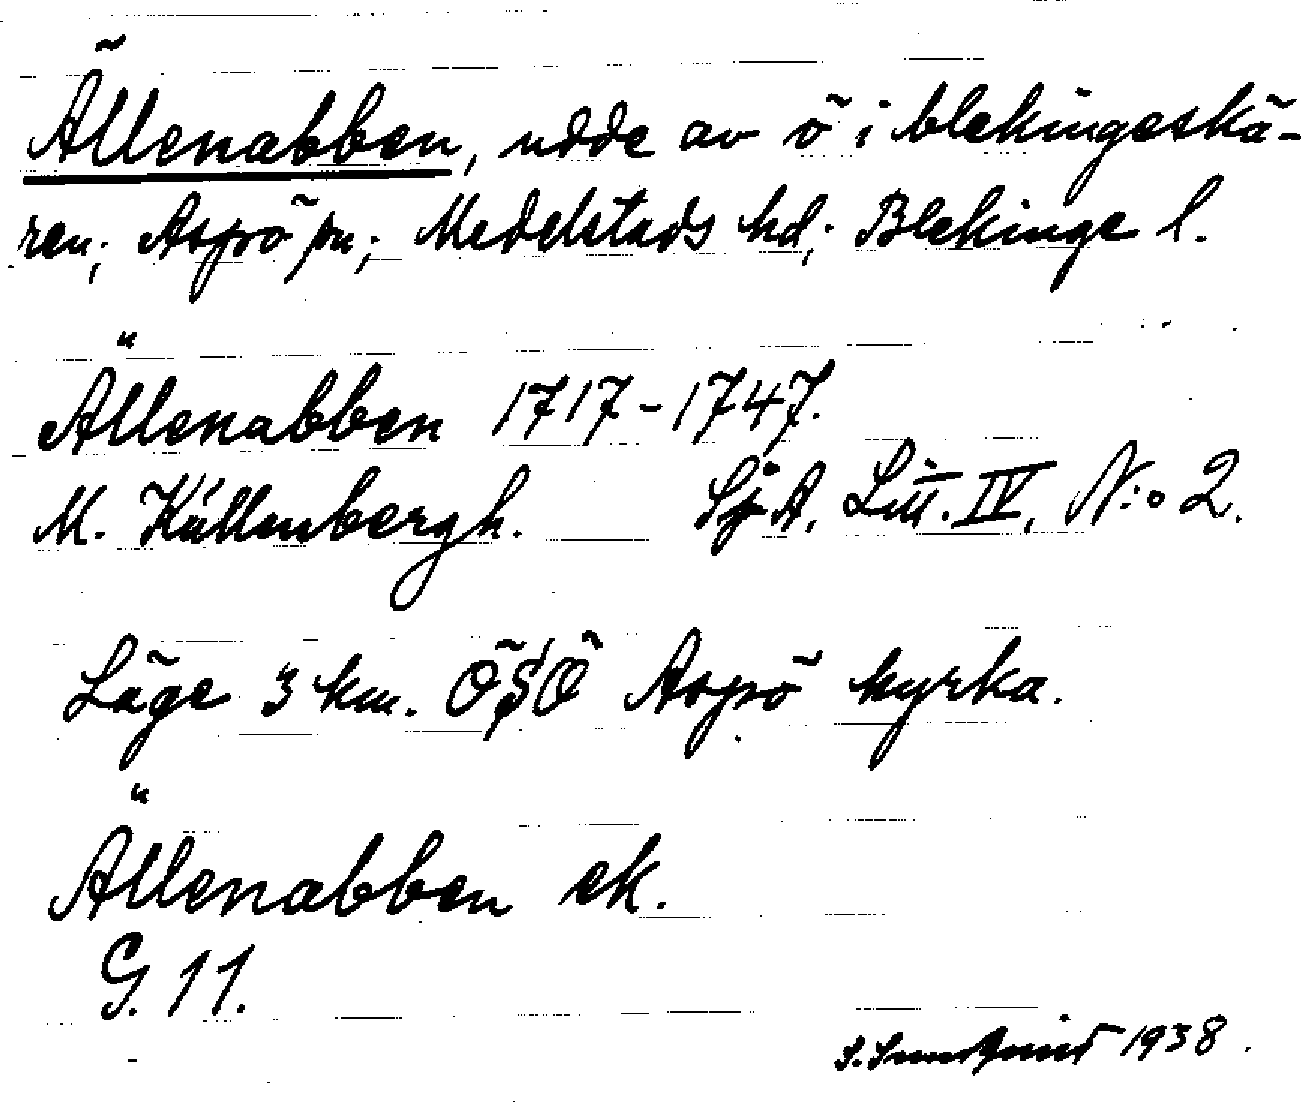 Ällenabben, udde av ö i blekingeskä-
ren; Aspö sn; Medelstads hd; Blekinge l.
Ällenabben 1717-1747.
M. Källenbergh. Sj.A. Litt. IV, N:o 2.
Läge 3 km. ÖSÖ Aspö kyrka.
Ällenabben ek.
G. 11.
S. 1938.